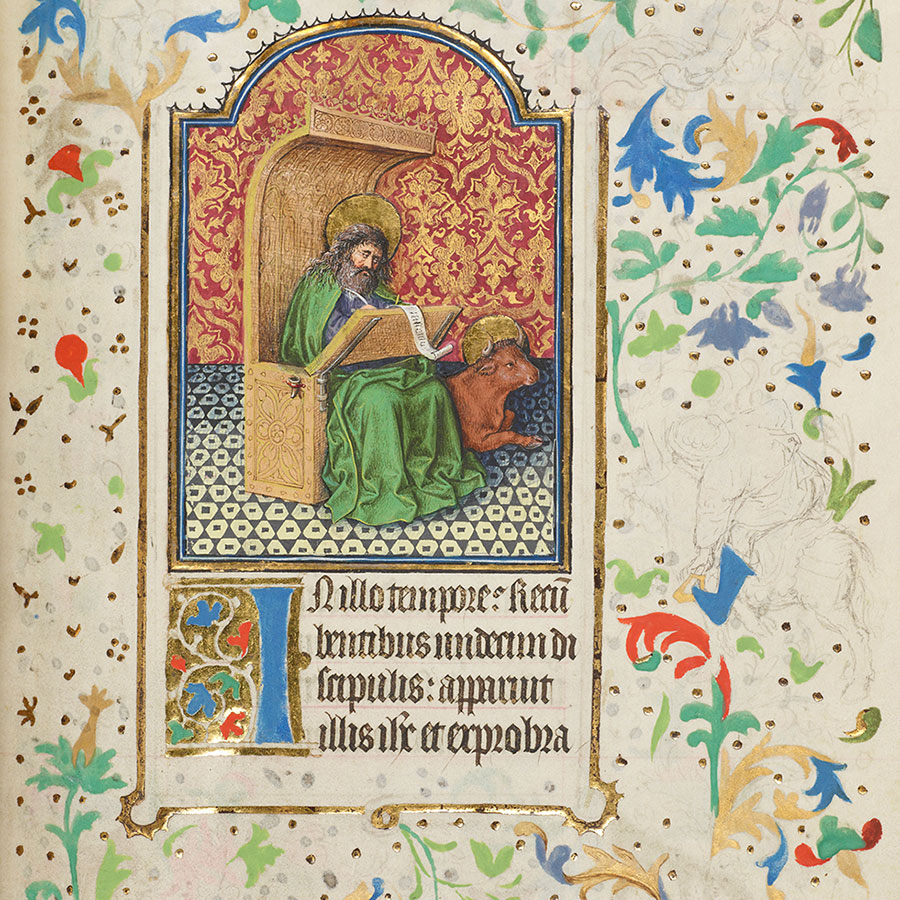 IN illo tempore: Recū
bentibus undecim di
scipulis: apparuit
illis ihs et exprobra